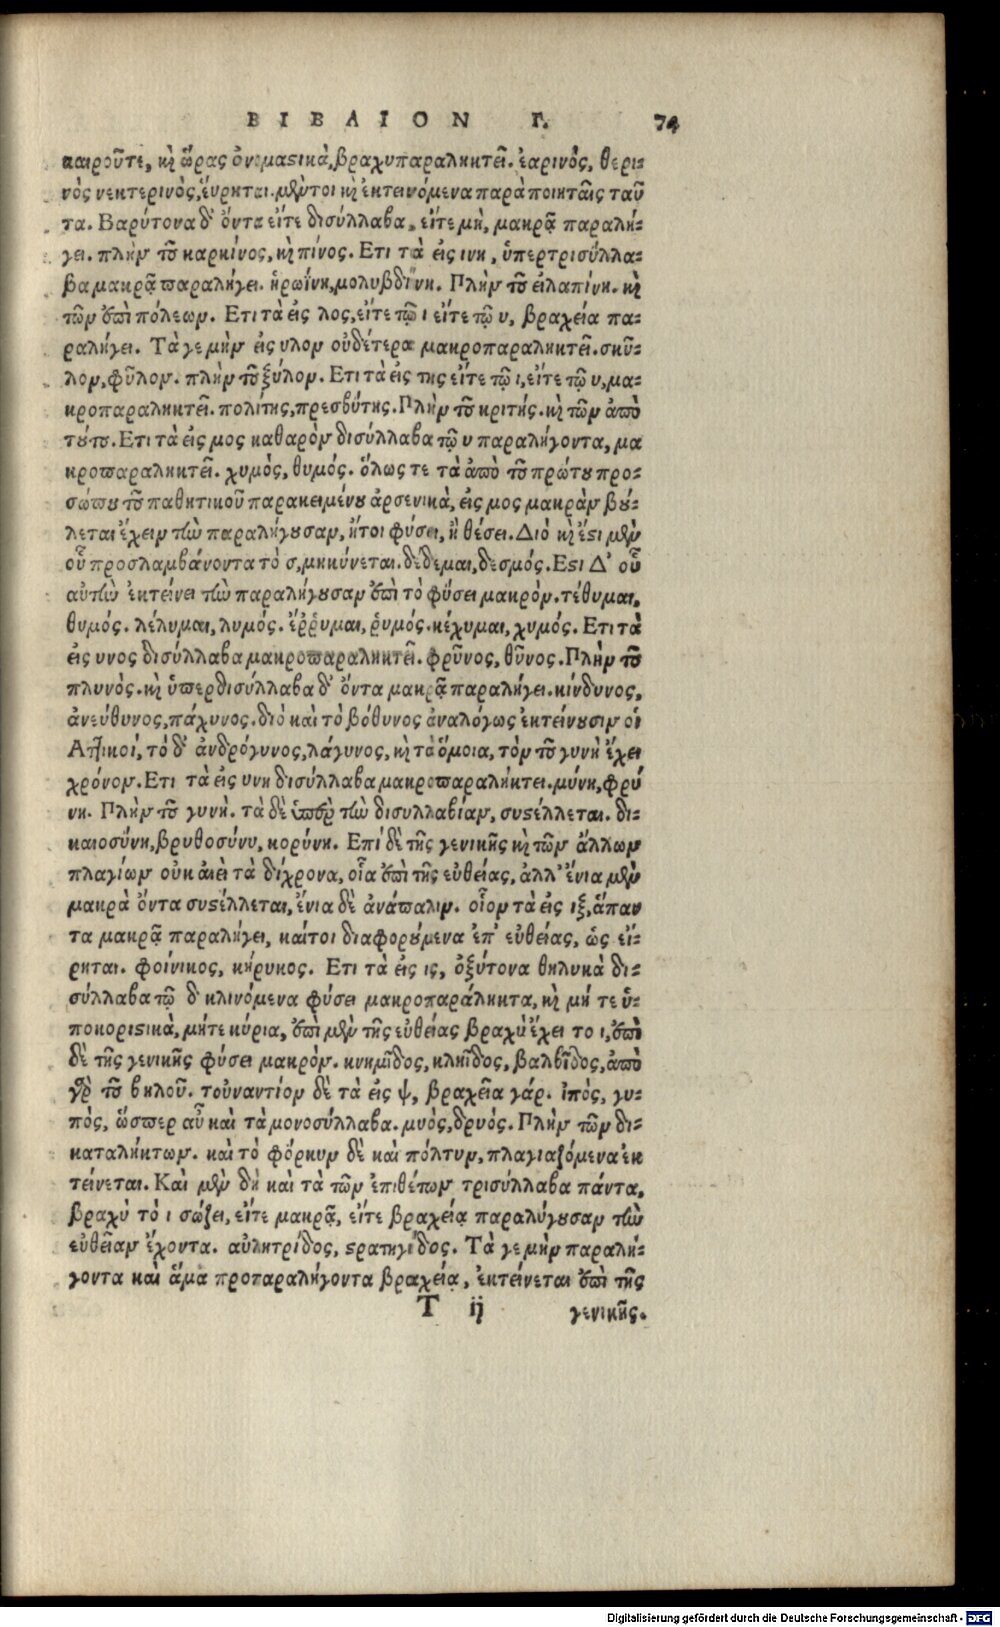 ΒΙΒΛΙΟΝ Γ. 74
καιροῦτε, καὶ ὥρας ὀνομαστικὰ, βραχυπαραληκτεῖ. ἐαρινὸς, θερι-
νὸς νεκτερινὸς, ἕυρηται. μέντοι καὶ ἐκτεινόμενα παρὰ ποιηταῖς ταῦ
τα. Βαρύτονα δ' ὄντα εἴτε δισύλλαβα, εἴτε μὴ, μακρᾷ παραλή-
γει. πλὴν τοῦ καρκίνος, καὶ πίνος. Ετι τὰ εἰς ινη, ὑπερτρισύλλα-
βα μακρᾷ παραλήγει. ἡρωΐνη, μολυβδίνη. Πλὴν τοῦ εἰλαπίνη. καὶ
τῶν ἐπὶ πόλεων. Ετι τὰ εἰς λος, εἴτε τῷ ι εἴτε τῷ υ, βραχεία πα-
ραλήγει. Τὰ γε μὴν εἰς υλον οὐδέτερα μακροπαραληκτεῖ. σκῦ-
λον, φῦλον. πλὴν τοῦ ξύλον. Ετι τὰ εἰς της εἴτε τῷ ι, εἴτε τῷ υ, μα-
κροπαραληκτεῖ. πολίτης, πρεσβύτης. Πλὴν τοῦ κριτής. καὶ τῶν ἀπὸ
τούτου. Ετι τὰ εἰς μος καθαρὸν δισύλλαβα τῷ υ παραλήγοντα, μα
κροπαραληκτεῖ. χυμὸς, θυμὸς. ὅλως τε τὰ ἀπὸ τοῦ πρώτου προ-
σώπου τοῦ παθητικοῦ παρακειμένου ἀρσενικὰ, εἰς μος μακρὰν βού-
λεται ἔχειν τὴν παραλήγουσαν, ἤτοι φύσει, ἢ θέσει. Διὸ καὶ ἔστι μὲν
οὗ προσλαμβάνοντα τὸ σ, μηκύνεται. δέδεμαι, δεσμός. Εστι Δ' οὗ
αὐτὴν ἐκτείνει τὴν παραλήγουσαν ἐπὶ τὸ φύσει μακρὸν. τέθυμαι,
θυμός. λέλυμαι, λυμός. ἔῤῥυμαι, ῥυμός. κέχυμαι, χυμός. Ετι τὰ
εἰς υνος δισύλλαβα μακροπαραληκτεῖ. φρῦνος, θῦνος. Πλὴν τοῦ
πλυνὸς. καὶ ὑπερδισύλλαβα δ' ὄντα μακρᾷ παραλήγει. κίνδυνος,
ἀνεύθυνος, πάχυνος. διὸ καὶ τὸ βόθυνος ἀναλόγως ἐκτείνουσιν οἱ
Ατῆικοί, τὸ δ' ἀνδρόγυνος, λάγυνος, καὶ τὰ ὅμοια, τὸν τοῦ γυνὴ ἔχει
χρόνον. Ετι τὰ εἰς υνη δισύλλαβα μακροπαραλήκτει. μύνη, φρύ
νη. Πλὴν τοῦ γυνὴ. τὰ δὲ ὑπὲρ τὴν δισυλλαβίαν, συστέλλεται. δι-
καιοσύνη, βρυθοσύνυ, κορύνη. Επὶ δὲ τῆς γενικῆς καὶ τῶν ἄλλων
πλαγίων οὐκ ἀιεὶ τὰ δίχρονα, οἷα ἐπὶ τῆς εὐθείας, ἀλλ' ἔνια μὲν
μακρὰ ὄντα συστέλλεται, ἔνια δὲ ἀνάπαλιν. οἷον τὰ εἰς ιξ, ἅπαν
τα μακρᾷ παραλήγει, καίτοι διαφορούμενα ἐπ' εὐθείας, ὡς εἴ-
ρηται. φοίνικος, κήρυκος. Ετι τὰ εἰς ις, ὀξύτονα θηλυκὰ δι-
σύλλαβα τῷ δ κλινόμενα φύσει μακροπαράληκτα, καὶ μή τε ὑ-
ποκοριστικὰ, μήτε κύρια, ἐπὶ μὲν τῆς εὐθείας βραχὺ ἔχει το ι, ἐπὶ
δὲ τῆς γενικῆς φύσει μακρὸν. κνημῖδος, κληῖδος, βαλβῖδος, ἀπὸ
γὰρ τοῦ βηλοῦ. τοὐναντίον δὲ τὰ εἰς ψ, βραχεῖα γάρ. ἰπός, γυ-
πὸς, ὥσπερ αὖ καὶ τὰ μονοσύλλαβα. μυὸς, δρυός. Πλὴν τῶν δι-
καταλήκτων. καὶ τὸ φόρκυν δὲ καὶ πόλτυν, πλαγιαζόμενα ἐκ
τείνεται. Καὶ μὲν δὴ καὶ τὰ τῶν ἐπιθέτων τρισύλλαβα πάντα,
βραχὺ τὸ ι σώζει, εἴτε μακρᾷ, εἴτε βραχείᾳ παραλύγουσαν τὴν
εὐθεῖαν ἔχοντα. αὐλητρίδος, στρατηγίδος. Τὰ γε μὴν παραλή-
γοντα καὶ ἅμα προπαραλήγοντα βραχείᾳ, ἐκτείνεται ἐπὶ τῆς
T ij γενικῆς.
Digitalisierung gefördert durch die Deutsche Forschungsgemeinschaft - DFG